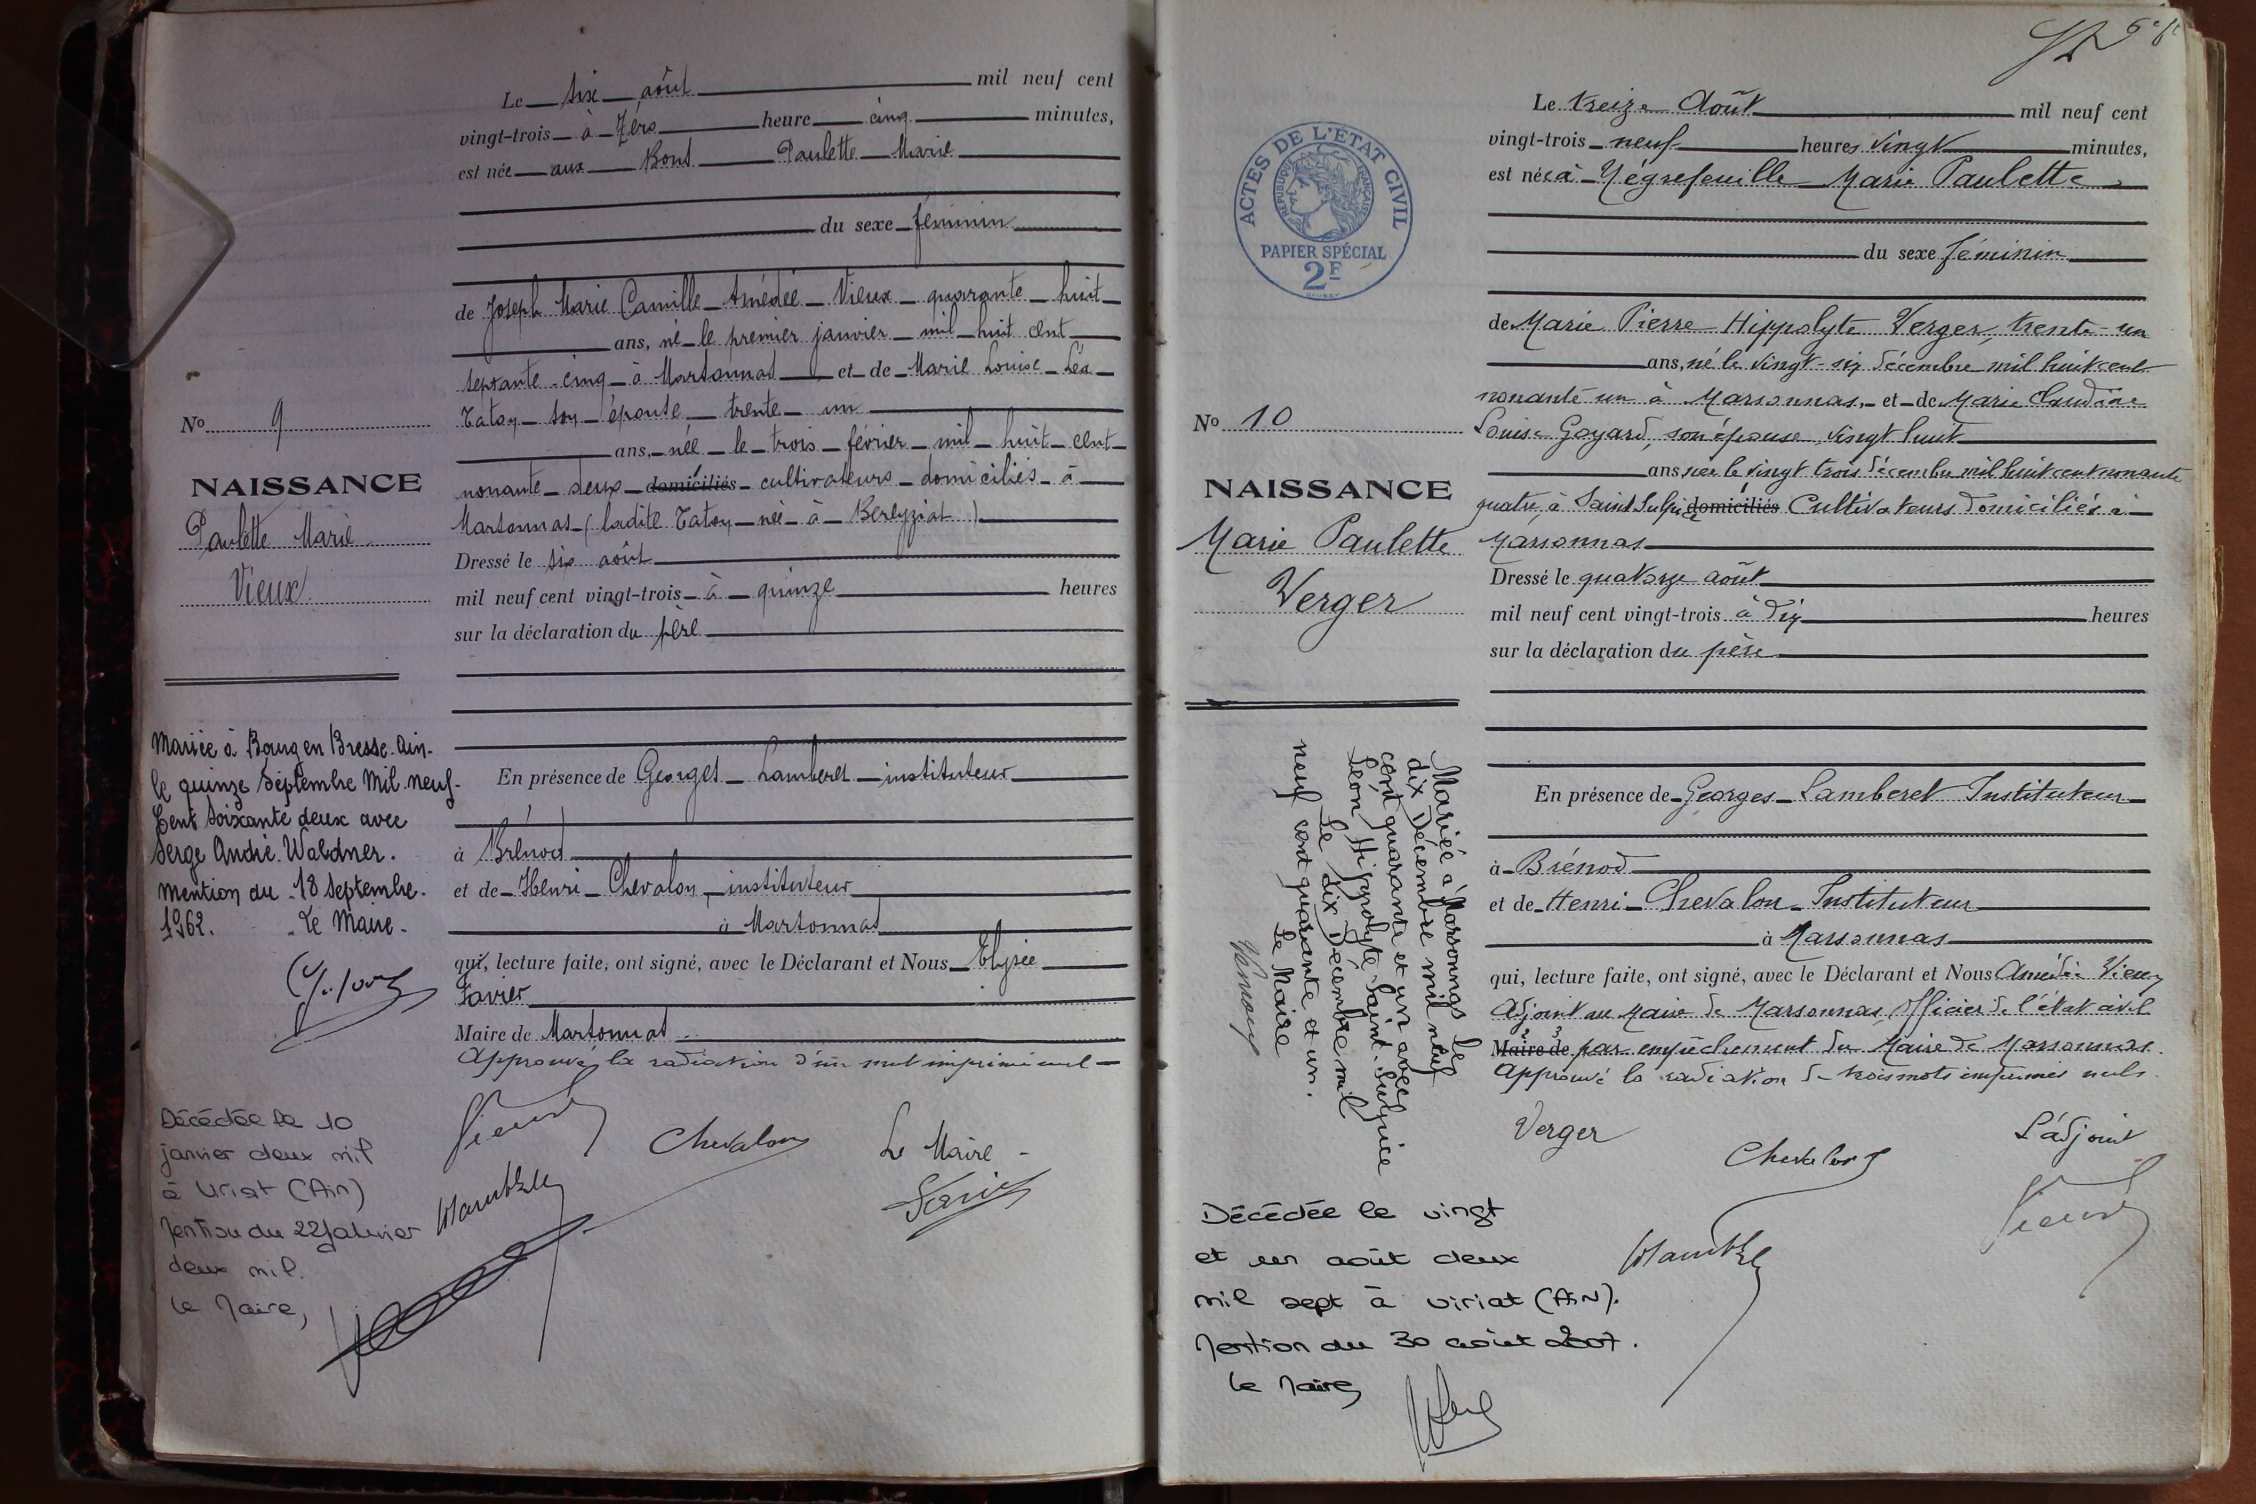 Le six août mil neuf cent
vingt-trois à zéro heure cinq minutes,
est née aux Bons Paulette Marie
du sexe féminin
de Joseph Marie Camille Amédée Vieux quarante huit
ans, né le premier janvier mil huit cent
septante cinq à Marsonnas et de Marie Louise Léa
Tatoy son épouse trente un
ans, née le trois février mil huit cent
nonante deux domiciliés cultivateurs domiciliés à
Marsonnas (ladite Tatoy née à Béréyziat)
Dressé le six août
mil neuf cent vingt-trois à quinze heures
sur la déclaration du père
En présence de Georges Lamberet instituteur
à Brénod
et de Henri Chevalon instituteur
à Marsonnas
qui, lecture faite, ont signé, avec le Déclarant et Nous Elysée
Favier
Maire de Marsonnas
Approuvé la radiation d'un mot imprimé nul
Vieux
Chevalon
Le Maire
Lamberet
Favier
No 9
NAISSANCE
Paulette Marie
Vieux
Mariée à Bourg en Bresse. Ain.
le quinze Septembre Mil neuf
Cent Soixante deux avec
Serge André Waldner.
Mention du 18 Septembre.
1962. Le Maire.
Décédée le 10
janvier deux mil
à Viriat (Ain)
Mention du 22 janvier
deux mil.
Le Maire,
Le treize Août mil neuf cent
vingt-trois neuf heures vingt minutes,
est née à Négrefeuille Marie Paulette
du sexe féminin
de Marie Pierre Hippolyte Verger, trente-un
ans, né le vingt-six décembre mil huit cent
nonante un à Marsonnas, et de Marie Claudine
Louise Goyard, son épouse, vingt huit
ans, née le vingt trois décembre mil huit cent nonante
quatre, à Saint Sulpice domiciliés Cultivateurs domiciliés à
Marsonnas
Dressé le quatorze août
mil neuf cent vingt-trois à dix heures
sur la déclaration du père
En présence de Georges Lamberet Instituteur
à Brénod
et de Henri Chevalon Instituteur
à Marsonnas
qui, lecture faite, ont signé, avec le Déclarant et Nous Amédée Vieux
Adjoint au Maire de Marsonnas, Officier de l'état civil
Maire de par empêchement du Maire de Marsonnas.
Approuvé la radiation de trois mots imprimés nuls.
Verger
Chevalon
L'adjoint
Lamberet
Vieux
ACTES DE L'ÉTAT CIVIL
RÉPUBLIQUE FRANÇAISE
PAPIER SPÉCIAL
2F
No 10
NAISSANCE
Marie Paulette
Verger
Mariée à Marsonnas le
dix Décembre mil neuf
cent quarante et un avec
Léon Hippolyte Saint-Sulpice
Le dix Décembre mil
neuf cent quarante et un.
Le Maire
Décédée le vingt
et un août deux
mil sept à Viriat (AiN).
Mention du 30 août 2007.
Le Maire,